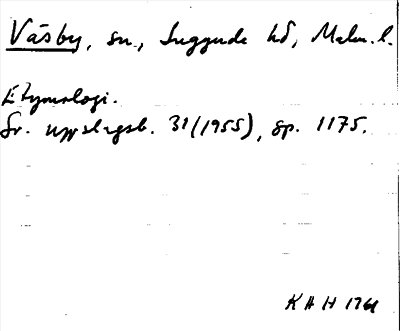 Väsby, sn., Luggude hd, Malm. l.
Etymologi.
Sv. uppslagsb. 31 (1955), sp. 1175.
K A H 1961